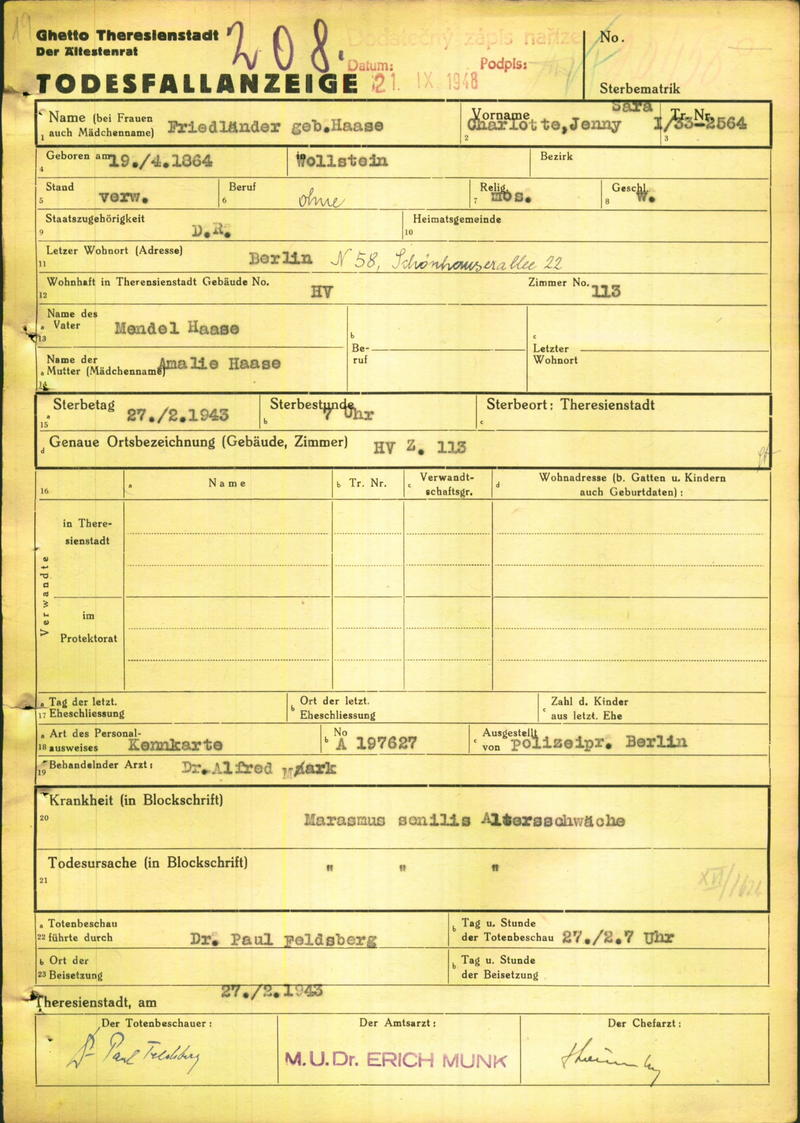 19
Ghetto Theresienstadt
Der Ältestenrat
208.
Dodatečný zápis naříze
Datum: 21. IX. 1948 Podpis:
No.
TODESFALLANZEIGE
Sterbematrik
Name (bei Frauen auch Mädchenname) Friedländer geb.Haase
1
Vorname Sara Charlotte,Jenny
2
Tr. Nr. I/33-2564
3
Geboren am 19./4.1864 Wollstein Bezirk
4
Stand verw. Beruf ohne Relig. mos. Geschl. W.
5 6 7 8
Staatszugehörigkeit D.R. Heimatsgemeinde
9 10
Letzer Wohnort (Adresse) Berlin N 58, Schönhauserallee 22
11
Wohnhaft in Theresienstadt Gebäude No. HV Zimmer No. 113
12
a Name des Vater Mendel Haase
13
b Beruf
c Letzter Wohnort
Name der
a Mutter (Mädchenname) Amalie Haase
14
a Sterbetag 27./2.1943 b Sterbestunde 7 Uhr c Sterbeort: Theresienstadt
15
d Genaue Ortsbezeichnung (Gebäude, Zimmer) HV Z. 113
16 a Name b Tr. Nr. c Verwandtschaftsgr. d Wohnadresse (b. Gatten u. Kindern auch Geburtdaten):
Verwandte
in Theresienstadt
im Protektorat
a Tag der letzt. Eheschliessung b Ort der letzt. Eheschliessung c Zahl d. Kinder aus letzt. Ehe
17
a Art des Personalausweises Kennkarte b No A 197627 c Ausgestellt von polizeipr. Berlin
18
Behandelnder Arzt: Dr.Alfred Mark
19
Krankheit (in Blockschrift)
20 Marasmus senilis Altersschwäche
Todesursache (in Blockschrift) " " "
21
XVI/1626
a Totenbeschau führte durch Dr. Paul Feldsberg b Tag u. Stunde der Totenbeschau 27./2.7 Uhr
22
b Ort der Beisetzung b Tag u. Stunde der Beisetzung
23
Theresienstadt, am 27./2.1943
Der Totenbeschauer: Der Amtsarzt: Der Chefarzt:
Dr Paul Feldsberg M.U.Dr. ERICH MUNK